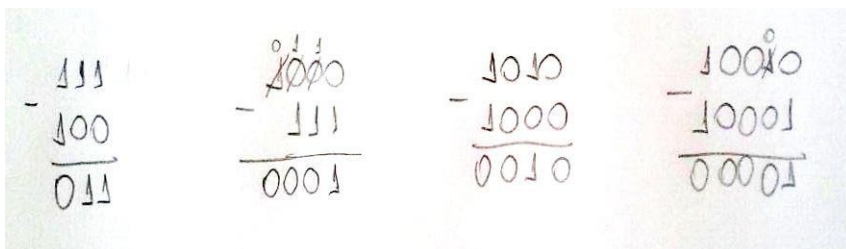 111
- 100
011
0 1 1
1000
- 111
0001
1010
- 1000
0010
0
10010
- 10001
00001